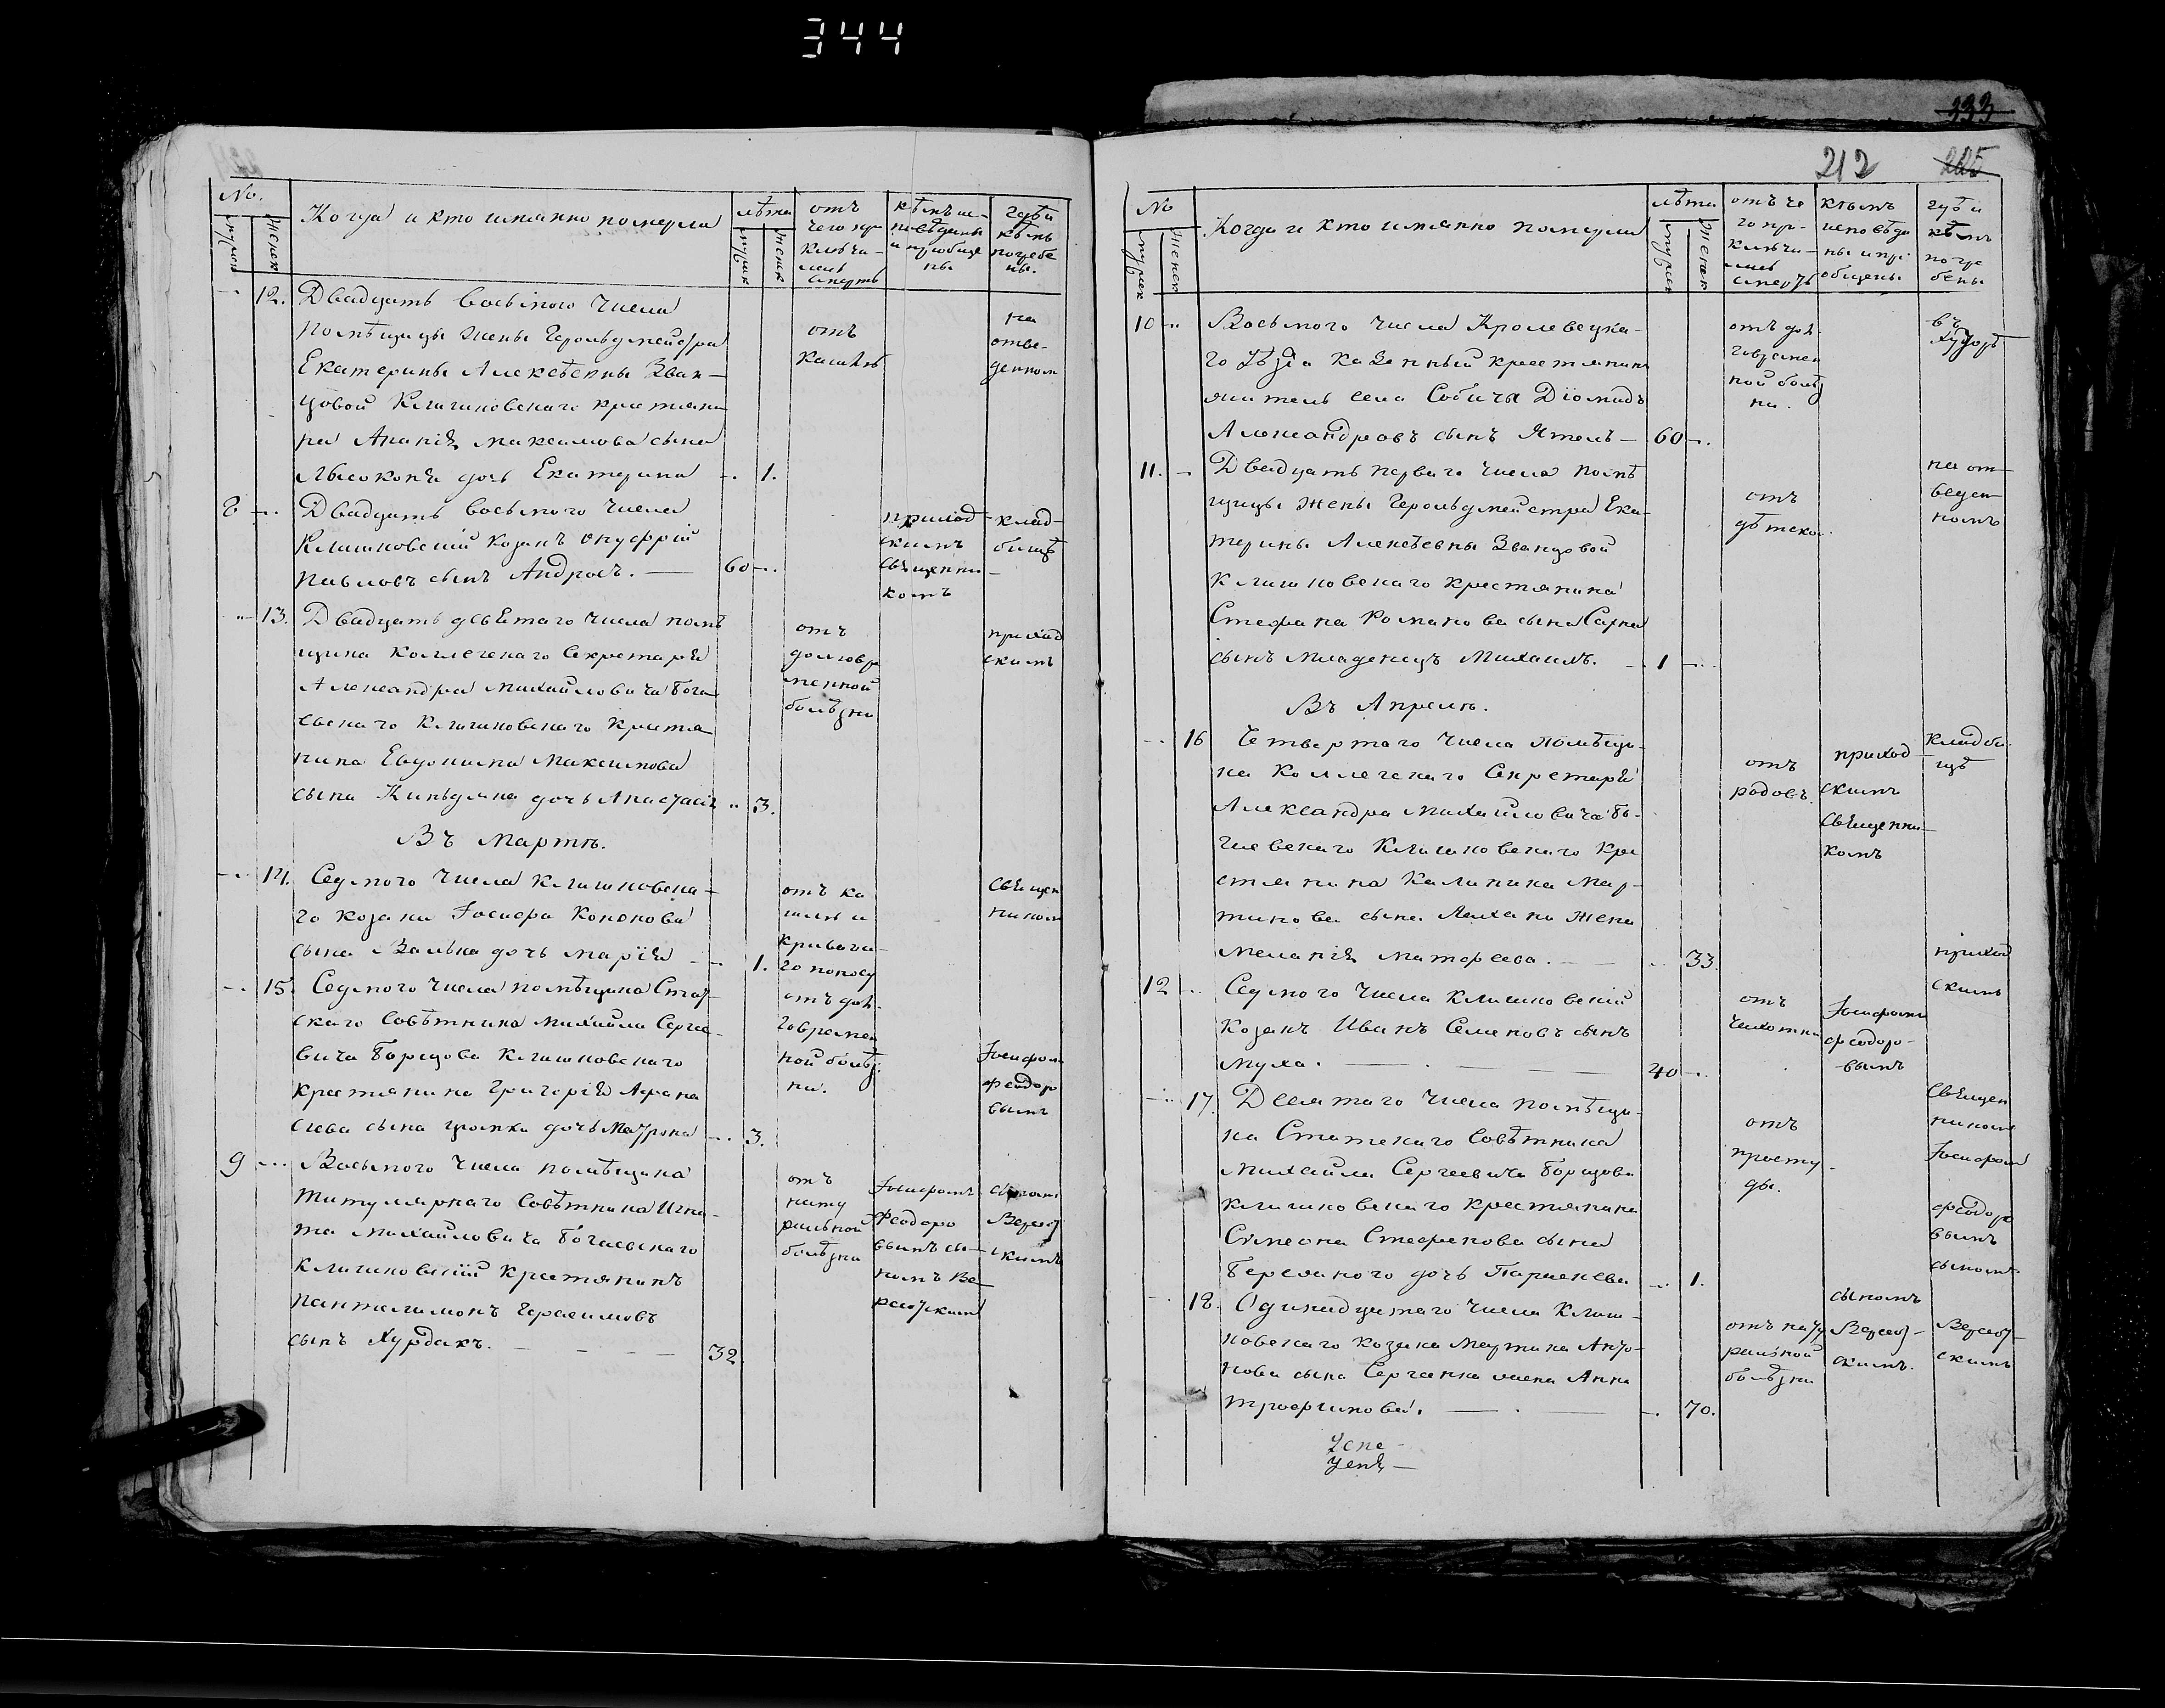 344
333
212 225
No.
мужск
женск
Когда и кто именно померли
лѣта
мужск
женск
отъ
чего при
ключи-
лась
смерть
кѣмъ ис-
повѣданы
и приобще
ны.
гдѣ и
кѣмъ
погребе
ны.
12. Двадцать восьмого числа
помѣщицы жены Герольдмейстра
Екатерины Алексѣевны Зван-
цовой Клишковскаго крестяни
на Ананія Максимова сына
Лысоконя дочь Екатерина 1.
отъ
кашлю
на
отве-
денном
8 Двадцать восьмого числа
Клишковскій козакъ Онуфрій
Павловъ сынъ Андрось. 60
приход-
скимъ
священни-
комъ
клад-
бищѣ
13. Двадцать девѣтаго числа помѣ
щика Коллегскаго Секретаря
Александра Михайловича Боча-
евскаго Клишковскаго крестя
нина Евдокима Максимова
сына дочь Анастасія 3.
отъ
долговре
менной
болѣзни
приход
скимъ
Въ Мартѣ.
14. Седмого числа Клишковска-
го козака Іосифа Кононова
сына дочь Марія 1.
отъ ка
шлю и
кривава-
го поносу
священ
ником
15. Седмого числа помѣщика Стат
скаго Совѣтника Михаила Сергее-
вича Борщова Клишковскаго
крестянина Григорія Афана
сиева сына Громки дочь Матрона 3.
отъ дол-
говремен
ной болѣз
ни.
Іосифом
Феодоро
вымъ
9 Восьмого числа помѣщика
Титулярнаго Совѣтника Игна-
та Михайловича Бочаевскаго
Клишковскій крестянинъ
Пантелимонъ Герасимовъ
сынъ Хурдакъ. 32
отъ
нату
ральной
болѣзни
Іосифомъ
Феодоро
вымъ сы-
номъ Ве-
ресотским
сыном
Вересот
скимъ
No
мужск
женск
Когда и кто именно померли
лѣта
мужск
женск
отъ че
го при-
ключи-
лась
смерть
кѣмъ
исповѣда
ны и прі
общены
гдѣ и
кѣмъ
погре
бены
10 Восьмого числа Кролевецка-
го Уѣзда казенный крестянинъ
житель села Собича Діомидъ
Александровъ сынъ Ятель 60
отъ дол
говремен
ной болѣз
ни.
въ
Хуторѣ
11. Двадцать перваго числа помѣ
щицы жены Герольдмейстра Ека-
терины Алексѣевны Званцовой
Клишковскаго крестянина
Стефана Романова сына Сарна
сынъ младенецъ Михаилъ. 1
отъ
дѣтско
на от
веден
номъ
Въ Апрелѣ.
16 Четвертаго числа помѣщи-
ка Коллегскаго Секретаря
Александра Михайловича Бо-
чаевскаго Клишковскаго кре
стянина Калиника Мар-
тинова сына жена
Меланія Матфеева. 33.
отъ
родовъ.
приход
скимъ
священни-
комъ
кладби
щѣ
12 Седмого числа Клишковскій
козакъ Иванъ Семеновъ сынъ
Муха. 40
отъ
чахотки
Іосифомъ
Феодоро-
вымъ
приход
скимъ
17. Десятаго числа помѣщи-
ка Статскаго Совѣтника
Михаила Сергеевича Борщова
Клишковскаго крестянина
Симеона Стефанова сына
Бережного дочь Параскева 1.
отъ
просту-
ды.
священ
ником
Іосифом
Феодоро
вымъ
сыномъ
18. Одинадцятаго числа Клиш-
ковскаго козака Мартина Анто-
нова сына жена Анна
Трофимова. 70.
отъ нату
ральной
болѣзни
сыномъ
Вересот-
скимъ.
Вересот-
скимъ